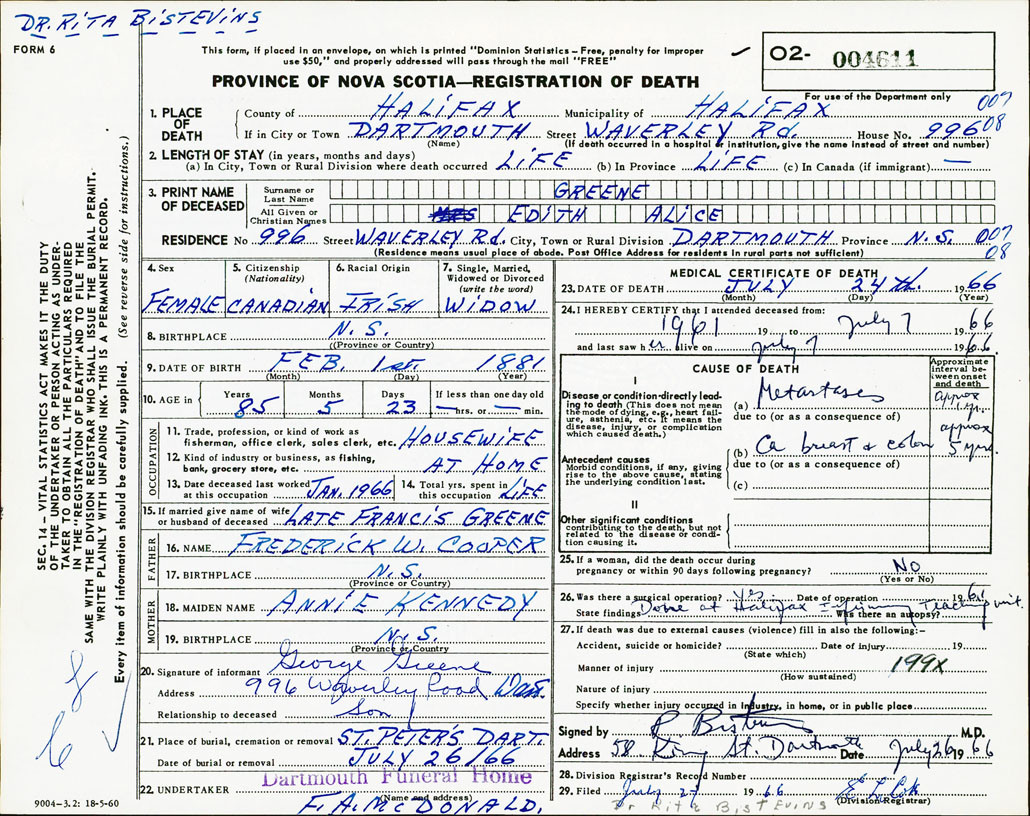 DR. RITA BISTEVINS
FORM 6
This form, if placed in an envelope, on which is printed "Dominion Statistics – Free, penalty for improper
use $50," and properly addressed will pass through the mail "FREE"
PROVINCE OF NOVA SCOTIA—REGISTRATION OF DEATH
O2- 004611
For use of the Department only
007
08
1. PLACE OF DEATH County of HALIFAX Municipality of HALIFAX
If in City or Town DARTMOUTH Street WAVERLEY Rd. House No. 996
(Name) (If death occurred in a hospital or institution, give the name instead of street and number)
2. LENGTH OF STAY (in years, months and days)
(a) In City, Town or Rural Division where death occurred LIFE (b) In Province LIFE (c) In Canada (if immigrant) —
3. PRINT NAME OF DECEASED
Surname or Last Name GREENE
All Given or Christian Names MRS EDITH ALICE
RESIDENCE No 996 Street WAVERLEY Rd. City, Town or Rural Division DARTMOUTH Province N.S. 007
08
(Residence means usual place of abode. Post Office Address for residents in rural parts not sufficient)
4. Sex FEMALE
5. Citizenship (Nationality) CANADIAN
6. Racial Origin IRISH
7. Single, Married, Widowed or Divorced (write the word) WIDOW
8. BIRTHPLACE N.S.
(Province or Country)
9. DATE OF BIRTH FEB. 1st. 1881
(Month) (Day) (Year)
10. AGE in Years 85 Months 5 Days 23 If less than one day old — hrs. or — min.
OCCUPATION
11. Trade, profession, or kind of work as
fisherman, office clerk, sales clerk, etc. HOUSEWIFE
12. Kind of industry or business, as fishing,
bank, grocery store, etc. AT HOME
13. Date deceased last worked
at this occupation JAN. 1966
14. Total yrs. spent in
this occupation LIFE
15. If married give name of wife
or husband of deceased LATE FRANCIS GREENE
FATHER
16. NAME FREDERICK W. COOPER
17. BIRTHPLACE N.S.
(Province or Country)
MOTHER
18. MAIDEN NAME ANNIE KENNEDY
19. BIRTHPLACE N.S.
(Province or Country
20. Signature of informant George Greene
Address 996 Waverley Road Dart.
Relationship to deceased Son
21. Place of burial, cremation or removal ST. PETER'S DART.
Date of burial or removal JULY 26/66
Dartmouth Funeral Home
22. UNDERTAKER F. A. McDONALD.
(Name and address)
9004–3.2: 18-5-60
MEDICAL CERTIFICATE OF DEATH
23. DATE OF DEATH JULY 24th. 1966
(Month) (Day) (Year)
24. I HEREBY CERTIFY that I attended deceased from:
1961 19 to July 7 1966
and last saw her alive on July 7 1966.
CAUSE OF DEATH
Approximate interval between onset and death
I
Disease or condition directly leading to death (This does not mean the mode of dying, e.g., heart failure, asthenia, etc. It means the disease, injury, or complication which caused death.)
(a) Metastases approx 1 yr.
due to (or as a consequence of)
(b) Ca breast & colon approx 5 yrs.
due to (or as a consequence of)
(c)
Antecedent causes
Morbid conditions, if any, giving rise to the above cause, stating the underlying condition last.
II
Other significant conditions
contributing to the death, but not related to the disease or condition causing it.
25. If a woman, did the death occur during
pregnancy or within 90 days following pregnancy? No
(Yes or No)
26. Was there a surgical operation? yes Date of operation 1961
State findings Done at Halifax Infirmary Teaching unit. Was there an autopsy?
27. If death was due to external causes (violence) fill in also the following:–
Accident, suicide or homicide? Date of injury 19
(State which)
Manner of injury 199X
(How sustained)
Nature of injury
Specify whether injury occurred in industry, in home, or in public place
Signed by R Bistevins M.D.
Address 58 King St. Dartmouth Date July 26 1966
28. Division Registrar's Record Number
29. Filed July 27 1966
(Division Registrar)
Dr Rita BISTEVINS
SEC. 14 – VITAL STATISTICS ACT MAKES IT THE DUTY
OF THE UNDERTAKER OR PERSON ACTING AS UNDER-
TAKER TO OBTAIN ALL THE PARTICULARS REQUIRED
IN THE "REGISTRATION OF DEATH" AND TO FILE THE
SAME WITH THE DIVISION REGISTRAR WHO SHALL ISSUE THE BURIAL PERMIT.
WRITE PLAINLY WITH UNFADING INK. THIS IS A PERMANENT RECORD.
Every item of information should be carefully supplied. (See reverse side for instructions.)